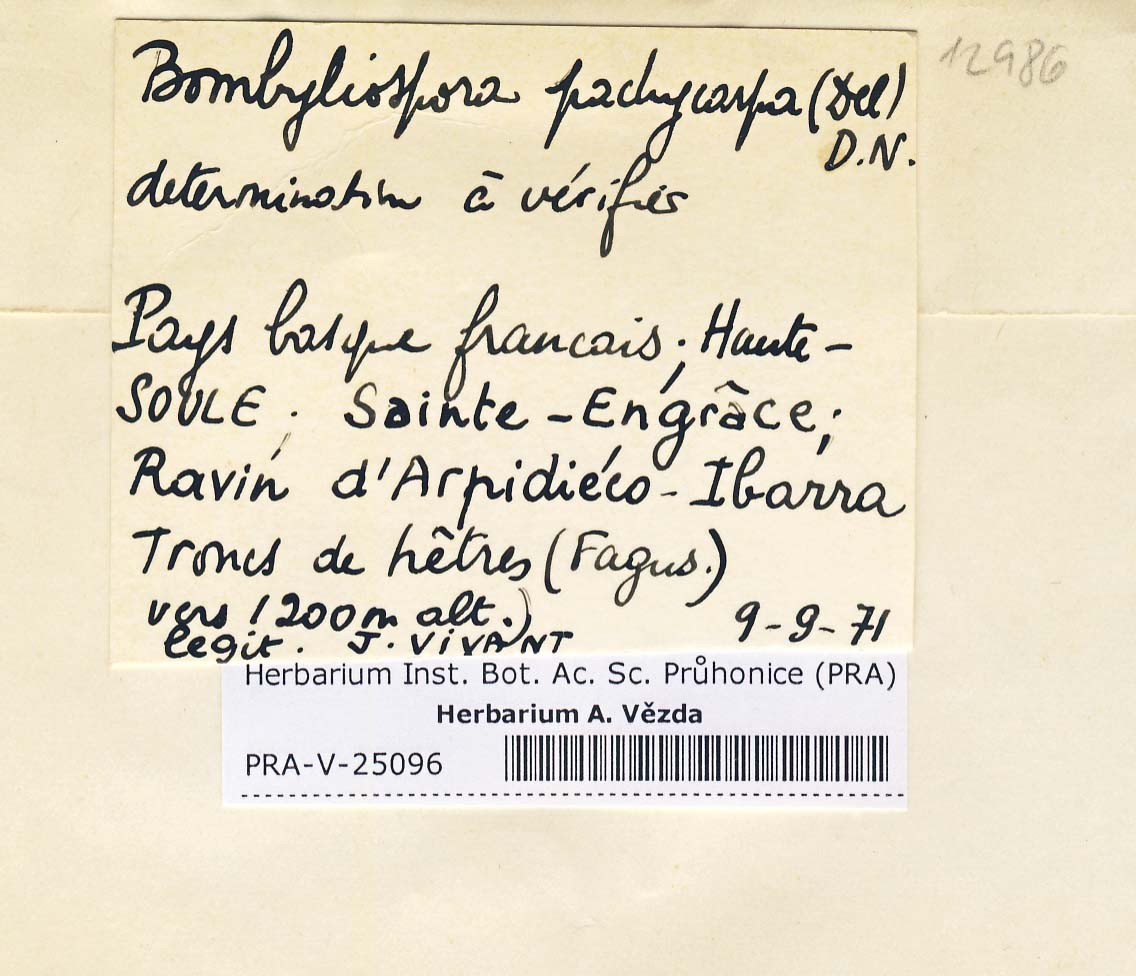 12986
Bombyliospora pachycarpa (Del)
D.N.
determination à vérifier
Pays basque francais; Haute-
SOULE. Sainte-Engrâce;
Ravin d'Arpidiéco-Ibarra
Troncs de hêtres (Fagus.)
vers 1200m alt.) 9-9-71
legit. J. VIVANT
Herbarium Inst. Bot. Ac. Sc. Průhonice (PRA)
Herbarium A. Vězda
PRA-V-25096